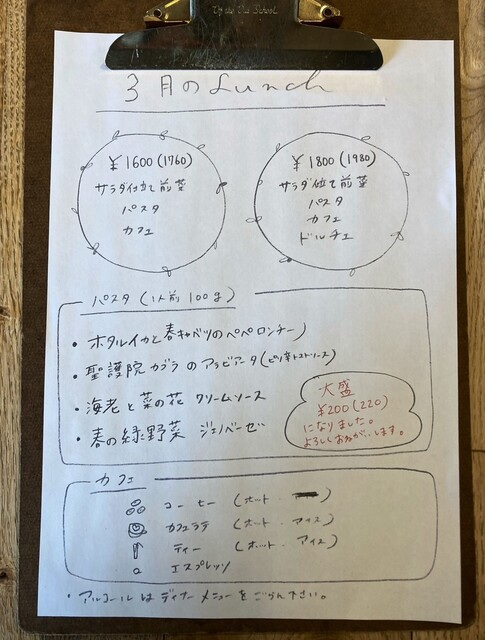 Up the Via School.
3月のLunch
¥1600(1760)
サラダ仕立て前菜
パスタ
カフェ
¥1800(1980)
サラダ仕立て前菜
パスタ
カフェ
ドルチェ
パスタ(1人前100g)
・ホタルイカと春キャベツのペペロンチーノ
・聖護院カブラのアラビアータ(ピリ辛トマトソース)
・海老と菜の花 クリームソース
・春の緑野菜 ジェノベーゼ
大盛
¥200(220)
になりました。
よろしくおねがいします。
カフェ
コーヒー(ホット・
カフェラテ(ホット・アイス)
ティー(ホット・アイス)
エスプレッソ
・アルコールはディナーメニューをごらん下さい。